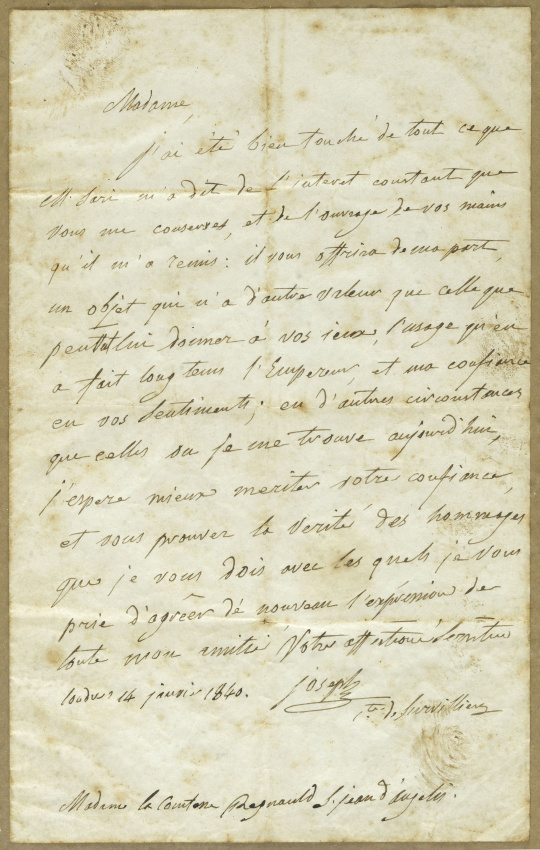 Madame,
j'ai été bien touché de tout ce que
Mr Sari m'a dit de l'interet constant que
vous me conservés, et de l'ouvrage de vos mains
qu'il m'a remis: il vous offrira de ma part,
un objet qui n'a d'autre valeur que celle que
peut lui donner à vos ieux, l'usage qu'en
a fait longtems l'Empereur, et ma confiance
en vos sentiments; en d'autres circonstances
que celles ou je me trouve aujourd'hui,
j'espere mieux meriter votre confiance,
et vous prouver la verité des hommages
que je vous dois avec les quels je vous
prie d'agréer de nouveau l'expression de
toute mon amitié Votre affectioné Serviteur
Londres 14 janvier 1840. joseph
Cte de Survilliers
Madame la Comtesse Regnauld S. jean d'angely.